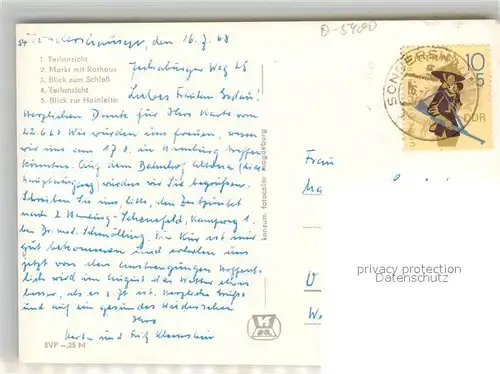 Sondershausen, den 16.7.68
D-5400
1. Teilansicht
2. Markt mit Rathaus
3. Blick zum Schloß
4. Teilansicht
5. Blick zur Hainleite
Weg 25
Liebes Fräulein
Herzlichen Dank für Ihre Karte vom
22.6.68. Wir würden uns freuen, wenn
wir uns am 17.8. in Hamburg treffen
könnten. Auf dem Bahnhof Altona
Hauptausgang) würden wir Sie begrüßen.
Schreiben Sie uns, bitte, den Zeitpunkt
nach 2 Hamburg-Schenefeld, Kampweg 1.
bei Dr. med. Schmölling. Die Kur ist mir
gut bekommen und erholen uns
jetzt von den Anstrengungen. Hoffent-
lich wird im August das Wetter etwas
besser, als es z. Zt. ist. Herzliche Grüße
und auf ein gesundes Wiedersehen
Ihre
Herta und Fritz
EVP -,25 M
konsum fotocolor magdeburg
SONDERSH
10
+5
DDR
Frau
privacy protection
Datenschutz